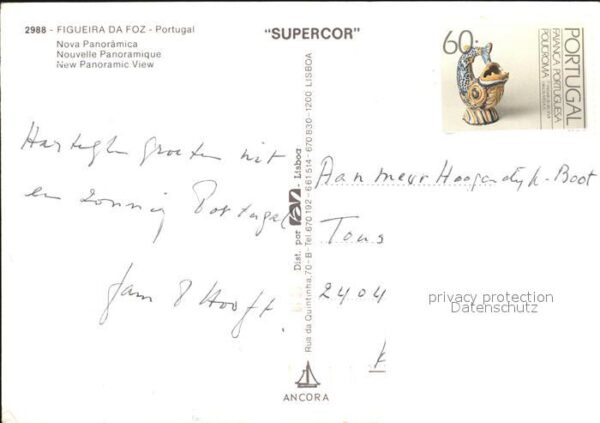 2988 - FIGUEIRA DA FOZ - Portugal
Nova Panorâmica
Nouvelle Panoramique
New Panoramic View
"SUPERCOR"
60.
PORTUGAL
FAIANÇA PORTUGUESA
POLICROMA
Hartelijke groeten uit
een zonnig Portugal
Jan 't Hooft.
Dist. por - Lisboa
Rua da Quintinha, 70-B - Tel. 670 192 - 661 514 - 670 830 - 1200 LISBOA
Aan mevr Hoogendyk-Boot
2404
privacy protection
Datenschutz
ANCORA